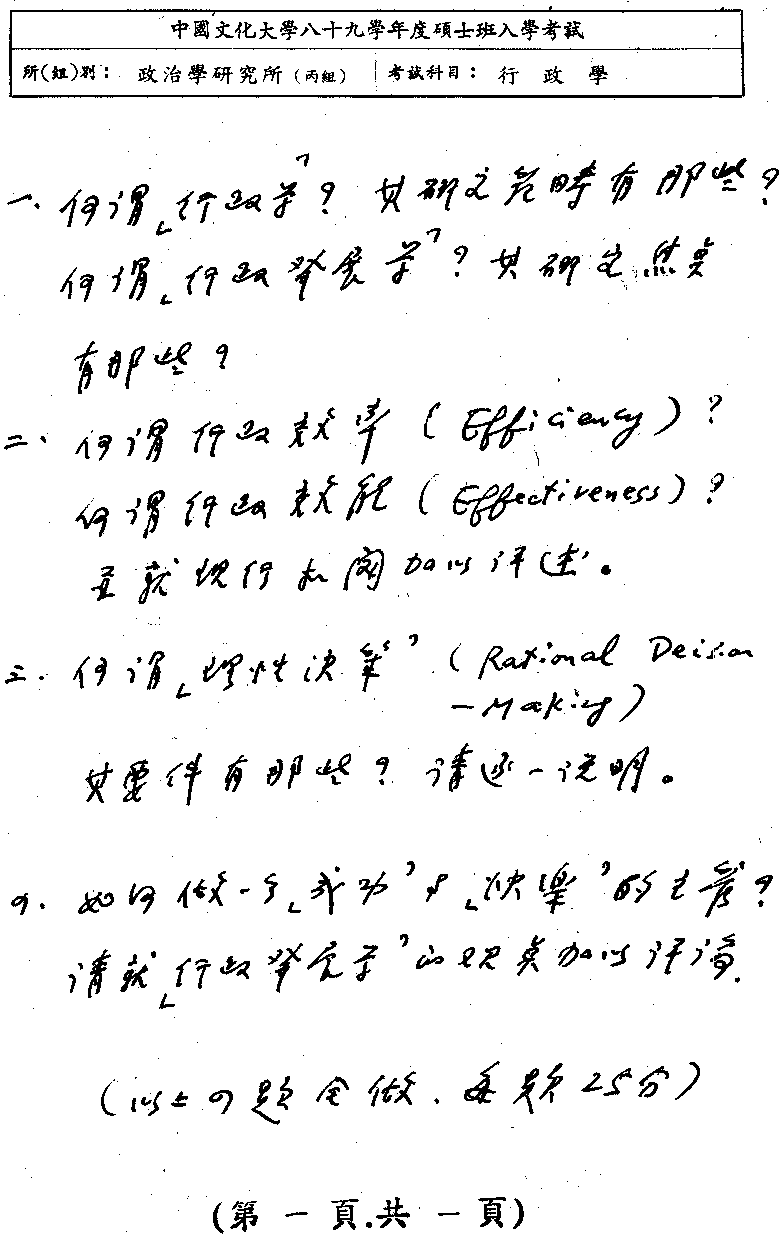 中國文化大學八十九學年度碩士班入學考試
所(組)別: 政治學研究所(丙組) 考試科目: 行政學
一、何謂「行政学」?其研究范疇有那些?
何謂「行政發展学」?其研究焦奌
有那些?
二、何謂行政效率(Efficiency)?
何謂行政效能(Effectiveness)?
并就現行机関加以評述。
三、何謂「理性決策」(Rational Deision
-Making)
其要件有那些?請逐一說明。
四、如何做一个「成功」与「快樂」的主管?
請就「行政發展学」的观奌加以評論.
(以上四題全做.每題25分)
(第一頁.共一頁)